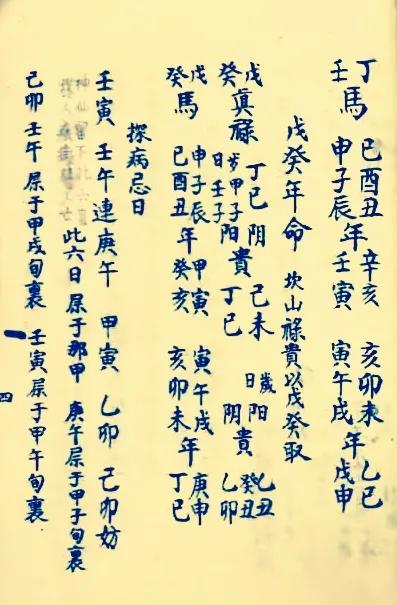 丁壬馬 巳酉丑申子辰年辛亥壬寅 亥卯未寅午戌年乙巳戊申
戊癸年命 坎山祿貴以戊癸取
戊癸眞祿 丁巳歲甲子日壬子 陰陽貴 己未丁巳 歲日陽陰貴 乙丑癸丑乙卯
戊癸馬 申子辰巳酉丑年甲寅癸亥 寅午戌亥卯未年庚申丁巳
探病忌日
壬寅 壬午連庚午 甲寅 乙卯 己卯妨
此六日屌于那甲 庚午屌于甲子旬裏
己卯 壬午 屌于甲戌旬裏 壬寅屌于甲午旬裏
四